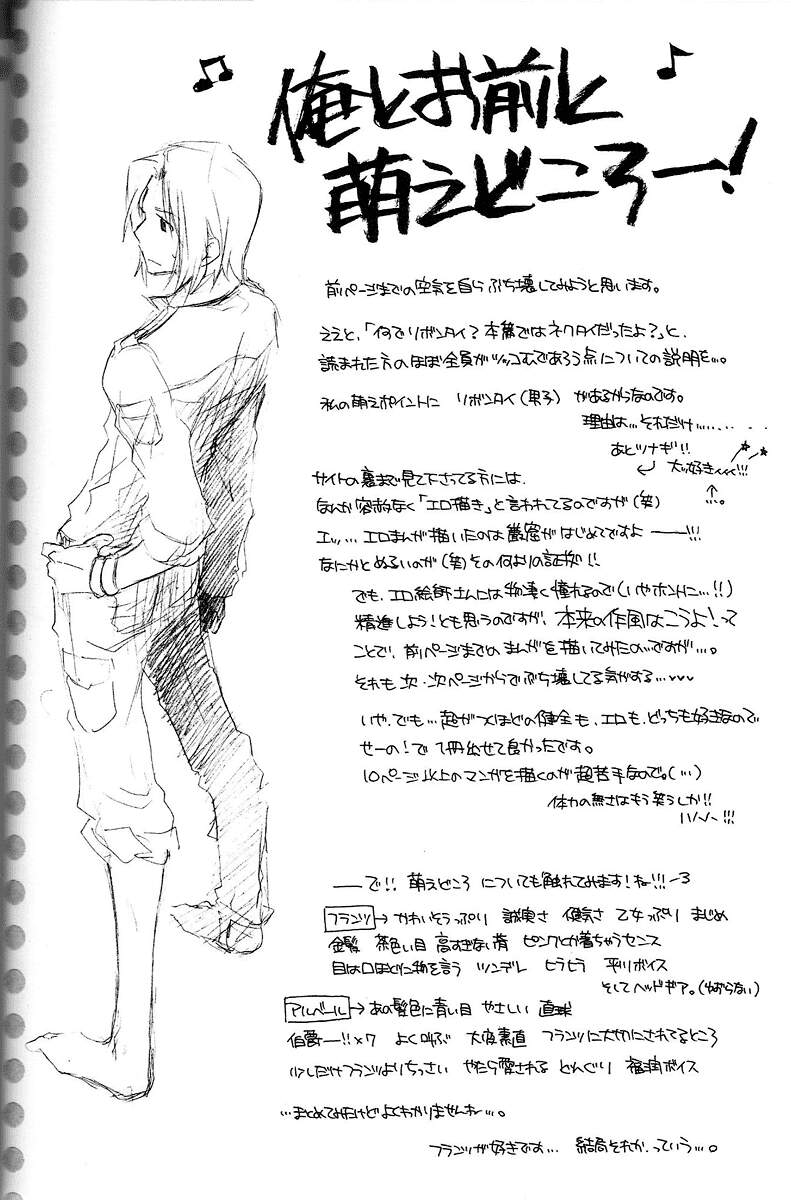 俺とお前と
萌えどころー!
前ページまでの空気を自らぶち壊してみようと思います。
ええと、「何でリボンタイ?本篇ではネクタイだったよ?」と、
読まれた方のほぼ全員がツッコむであろう点についての説明を…。
私の萌えポイントに リボンタイ(男子) があるからなのです。
理由は…それだけ……...
あとツナギ!!
大ッ好き
サイトの裏まで見て下さってる方には、
なんか容赦なく「エロ描き」と言われてるのですが(笑)
エッ…、エロまんが描いたのは巌窟がはじめてですよ――!!!
なにかとぬるいのが(笑)その何よりの証拠!!
でも、エロ絵師さんには物凄く憧れるので(いやホントに…!!)
精進しよう!とも思うのですが、本来の作風はこうよ!って
ことで、前ページまでの まんがを描いてみたのですが…。
それも次・次ページからでぶち壊してる気がする…
いや、でも…超がつくほどの健全も、エロも、どっちも好きなので
せーの!で 1冊出せて良かったです。
10ページ以上のマンガを描くのが超苦手なので。(…)
体力の無さはもう笑うしか!!
――で!! 萌えどころ についても触れてみます!ねー!!!
フランツ→かわいそうっぷり 誠実さ 健気さ 乙女っぷり まじめ
金髪 茶色い目 高すぎない背 ピンクとか着ちゃうセンス
目は口ほどに物を言う ツンデレ ヒラヒラ 平川ボイス
そしてヘッドギア。(ゆずらない)
アルベール→あの髪色に青い目 やさしい 直球
伯爵―!!×7 よく叫ぶ 大変素直 フランツに大切にされてるところ
少しだけフランツよりちっさい やたら愛される どんぐり 福潤ボイス
…まとめてみたけどよくわかりませんねー…。
フランツが好きです… 結局それか、っていう…。